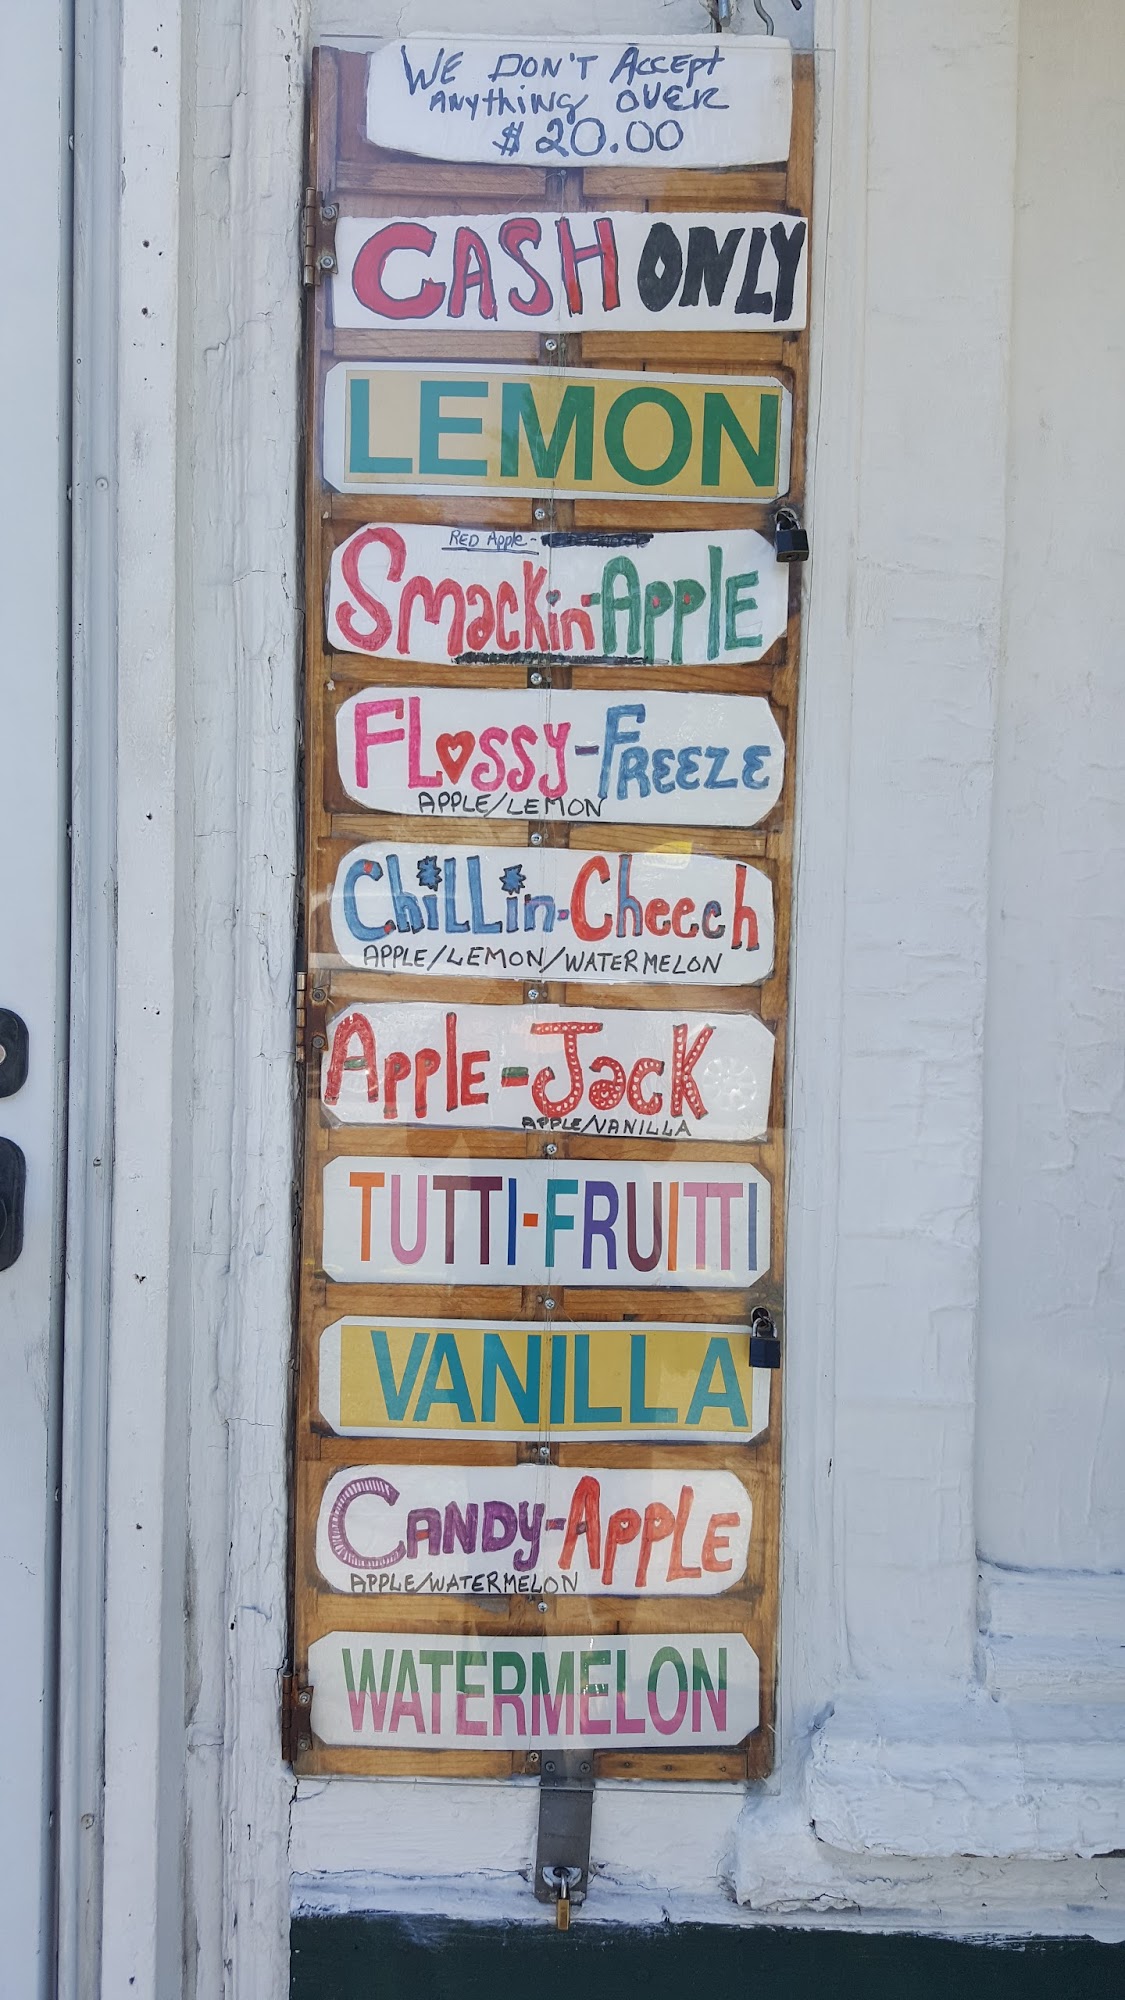 WE DON'T Accept
Anything OVER
$ 20.00
CASH ONLY
LEMON
RED Apple-
Smackin-Apple
FLOSSY-FREEZE
APPLE/LEMON
ChiLLin-Cheech
APPLE/LEMON/WATERMELON
Apple-Jack
APPLE/VANILLA
TUTTI-FRUITTI
VANILLA
CANDY-APPLE
APPLE/WATERMELON
WATERMELON